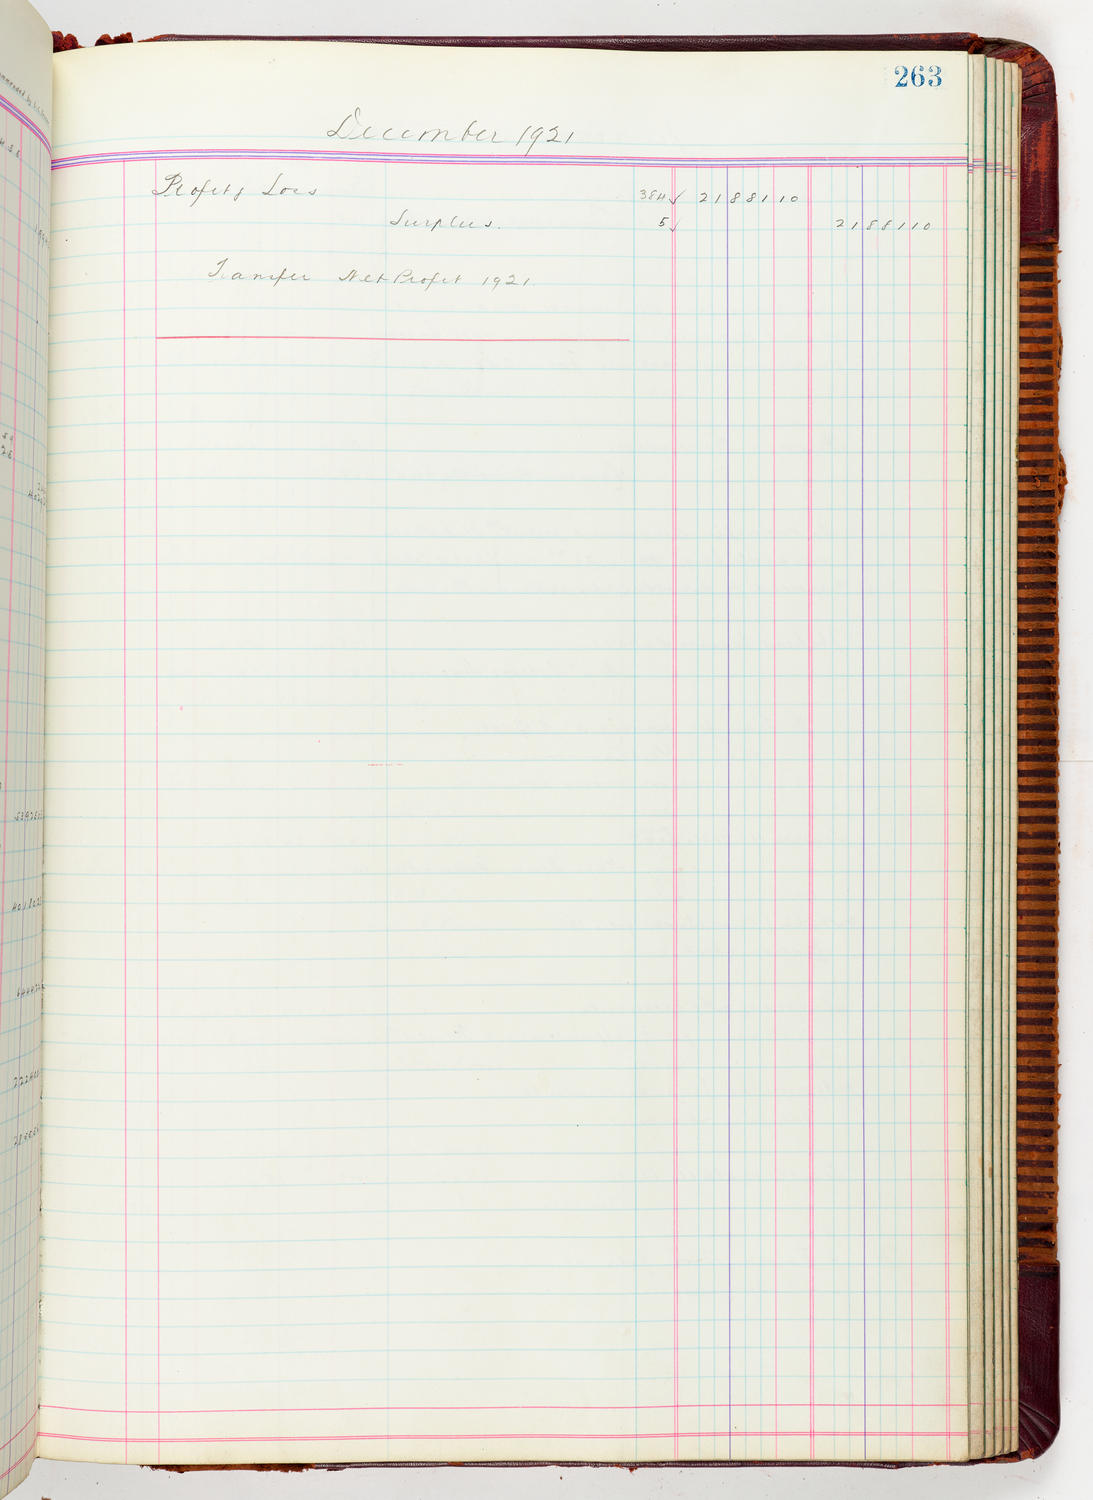 263
December 1921
Profit & Loss 384 ✓ 21881 10
Surplus. 5 ✓ 21881 10
Transfer Net Profit 1921